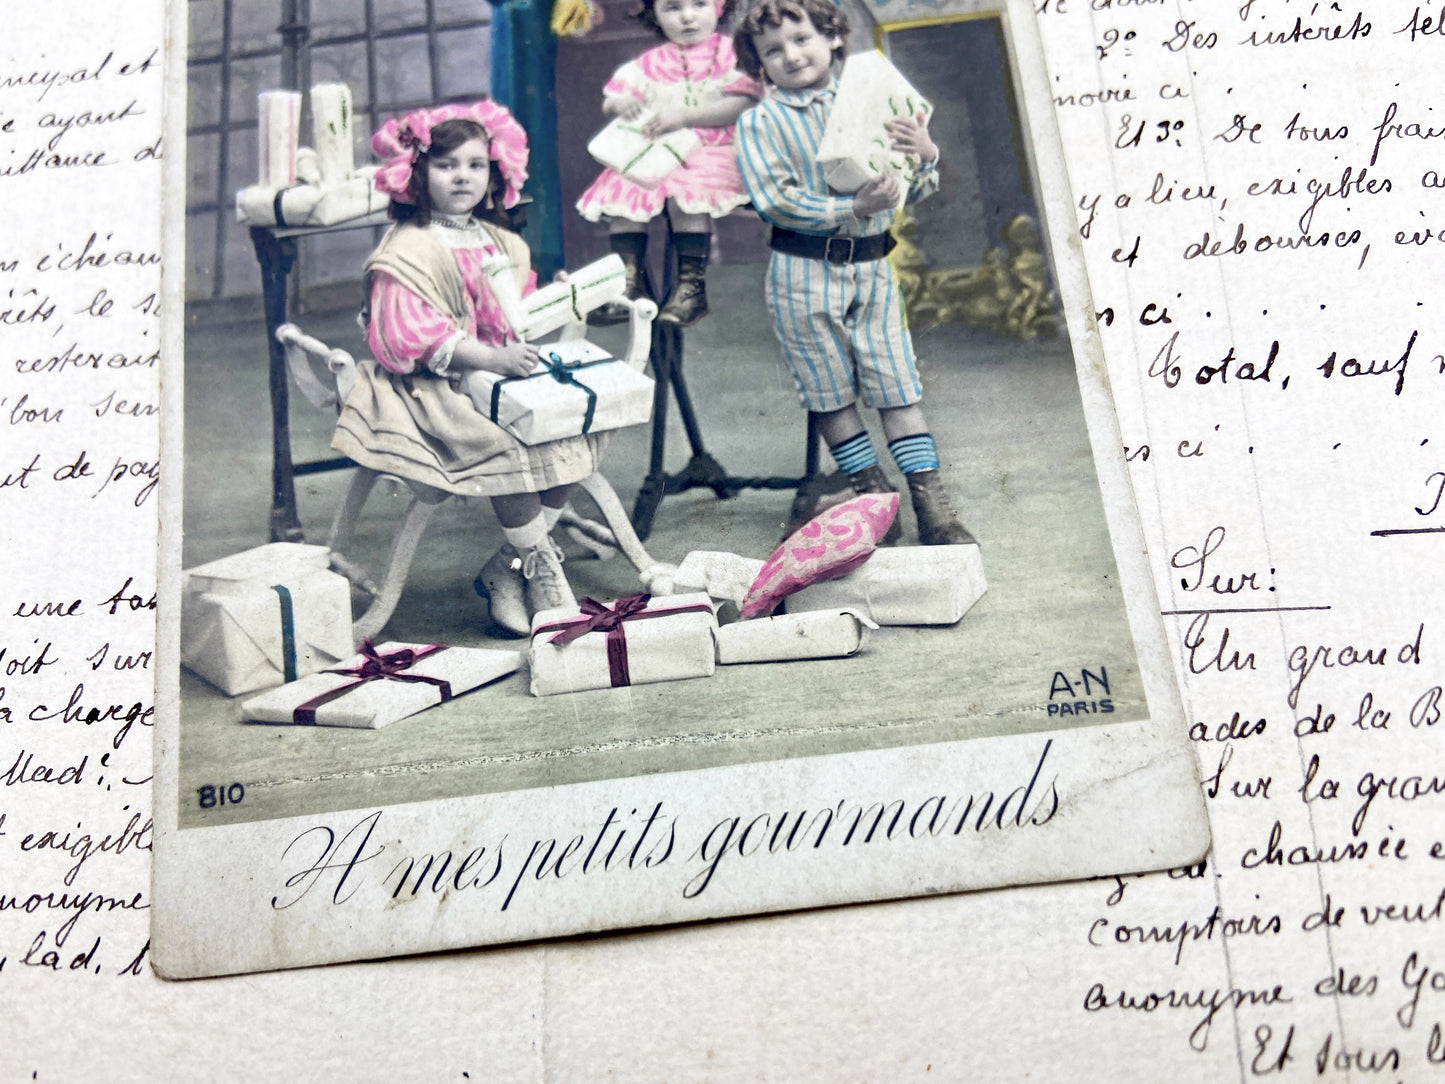 ncipal et
e ayant
uittance d
n échéan
rêts, le s
resterait
bon sem
ut de pay
une tas
doit sur
la charge
Mad?
exigible
anonyme
lad, t
2º Des intérêts tél
moire ci . . .
Et 3º De tous frais
y a lieu, exigibles a
et débourses, évo
s ci . . .
Total, sauf
es ci . . .
Sur:
Un grand
ades de la B
Sur la gran
chaussée e
comptoirs de vent
anonyme des Ga
Et tous le
A-N
PARIS
810
A mes petits gourmands